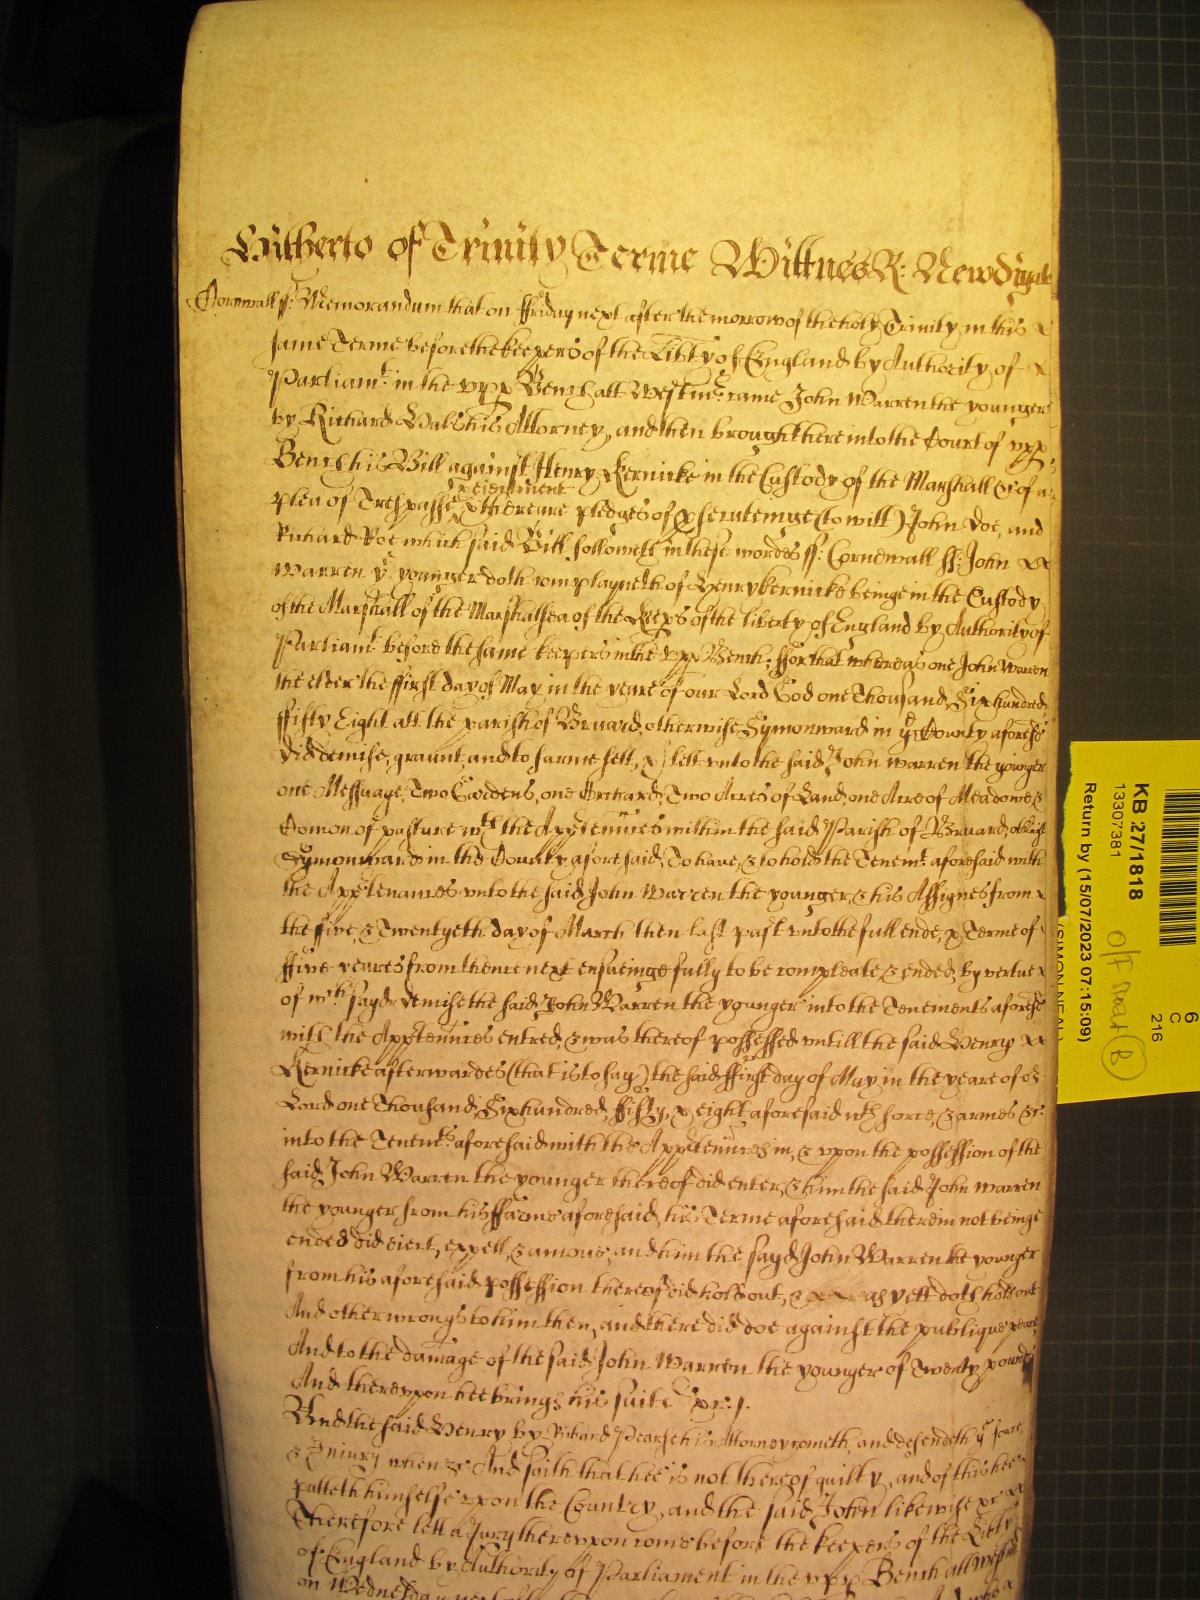 Hitherto of Trinity Terme Wittnes R: Newdigate
Cornwall ss: Memorandum that on ffriday next after the morrow of the holy Trinity in this x
same Terme before the keepers of the Lib͠ty of England by Authority of x
Parliamt. in the vpp Bench att Westmr. came John Warren the younger
by Richard Hals his Attorney, and then brought here into the Court of vpp
Bench his Bill against Henry Kernicke in the Custody of the Marshall &c of a
plea of Trespasse & eiectment & there are pledges of p̱secuteinge (to witt) John Doe, and
Richard Roe which said Bill followeth in these wordes ss: Cornewall ss: John xx
Warren ye younger doth complayneth of Henry kernicke beinge in the Custody
of the Marshall of the Marshalsea of the Keeps of the liberty of England by Authority of
Parliamt. before the same keepers in the vpp Bench; ffor that whereas one John Warren
the elder the ffirst day of May in the yeare of our Lord God one Thousand Six hundred
ffifty Eight att the parish of Bruard, otherwise Symonward in ye County aforesd
did demise, graunt, and to farme lett, & sett vnto the said John warren the younger
one Messuage, Two Gardens, one Orchard, Two Acres of Land, one Acre of Meadowe &
Comon of pasture wth the Appṯenn̄ces within the said Parish of Bruard, otherwise
Symonward in the County aforesaid, To have, & to hold the Tenemt. aforesaid with
the Appṯenances vnto the said John Warren the younger, & his Assignes from x
the five, & Twentyeth day of March then last past vnto the full ende, & Terme of
ffive yeares from thence next ensueinge fully to be compleate, & ended, by vertue x
of wch sayd demise the said John Warren the younger into the Tenements aforesd
with the Appṯenn̄ces entred, & was thereof possessed vntill the said Henry xx
Kernicke afterwardes (that is to say) the said ffirst day of May in the yeare of or
Lord one Thousand, Six hundred, ffifty, & eight aforesaid wth force, & armes &c
into the Tenemts. aforesaid with the Appṯenn̄ces in, & vpon the possession of the
said John Warren the younger thereof did enter, & him the said John warren
the younger from his ffarme aforesaid, his Terme aforesaid therein not beinge
ended did eiect, expell, & amove, and him the sayd John Warren the younger
from his aforesaid possession thereof did hold out, & xxx as yett doth hold out
And other wrongs to him then, and there did doe against the publique peace
And to the damage of the said John Warren the younger of Twenty pounds
And therevpon hee brings his suite &c.
And the said Henry by Richard Pearse his Attorney cometh, and defendeth ye force,
& Iniury when &c And saith that hee is not thereof guilty, and of this hee
putteth himselfe vpon the Country, and the said John likewise &c xx
Therefore lett a Jury therevpon come before the keepers of the Lib͠ty
of England by Authority of Parliament in the vpp Bench att Westmr
on Wednesday next
KB 27/1818
13307381
Return by (15/07/2023 07:15:09)
(SIMON NEAL)
6
C
216
Off
B